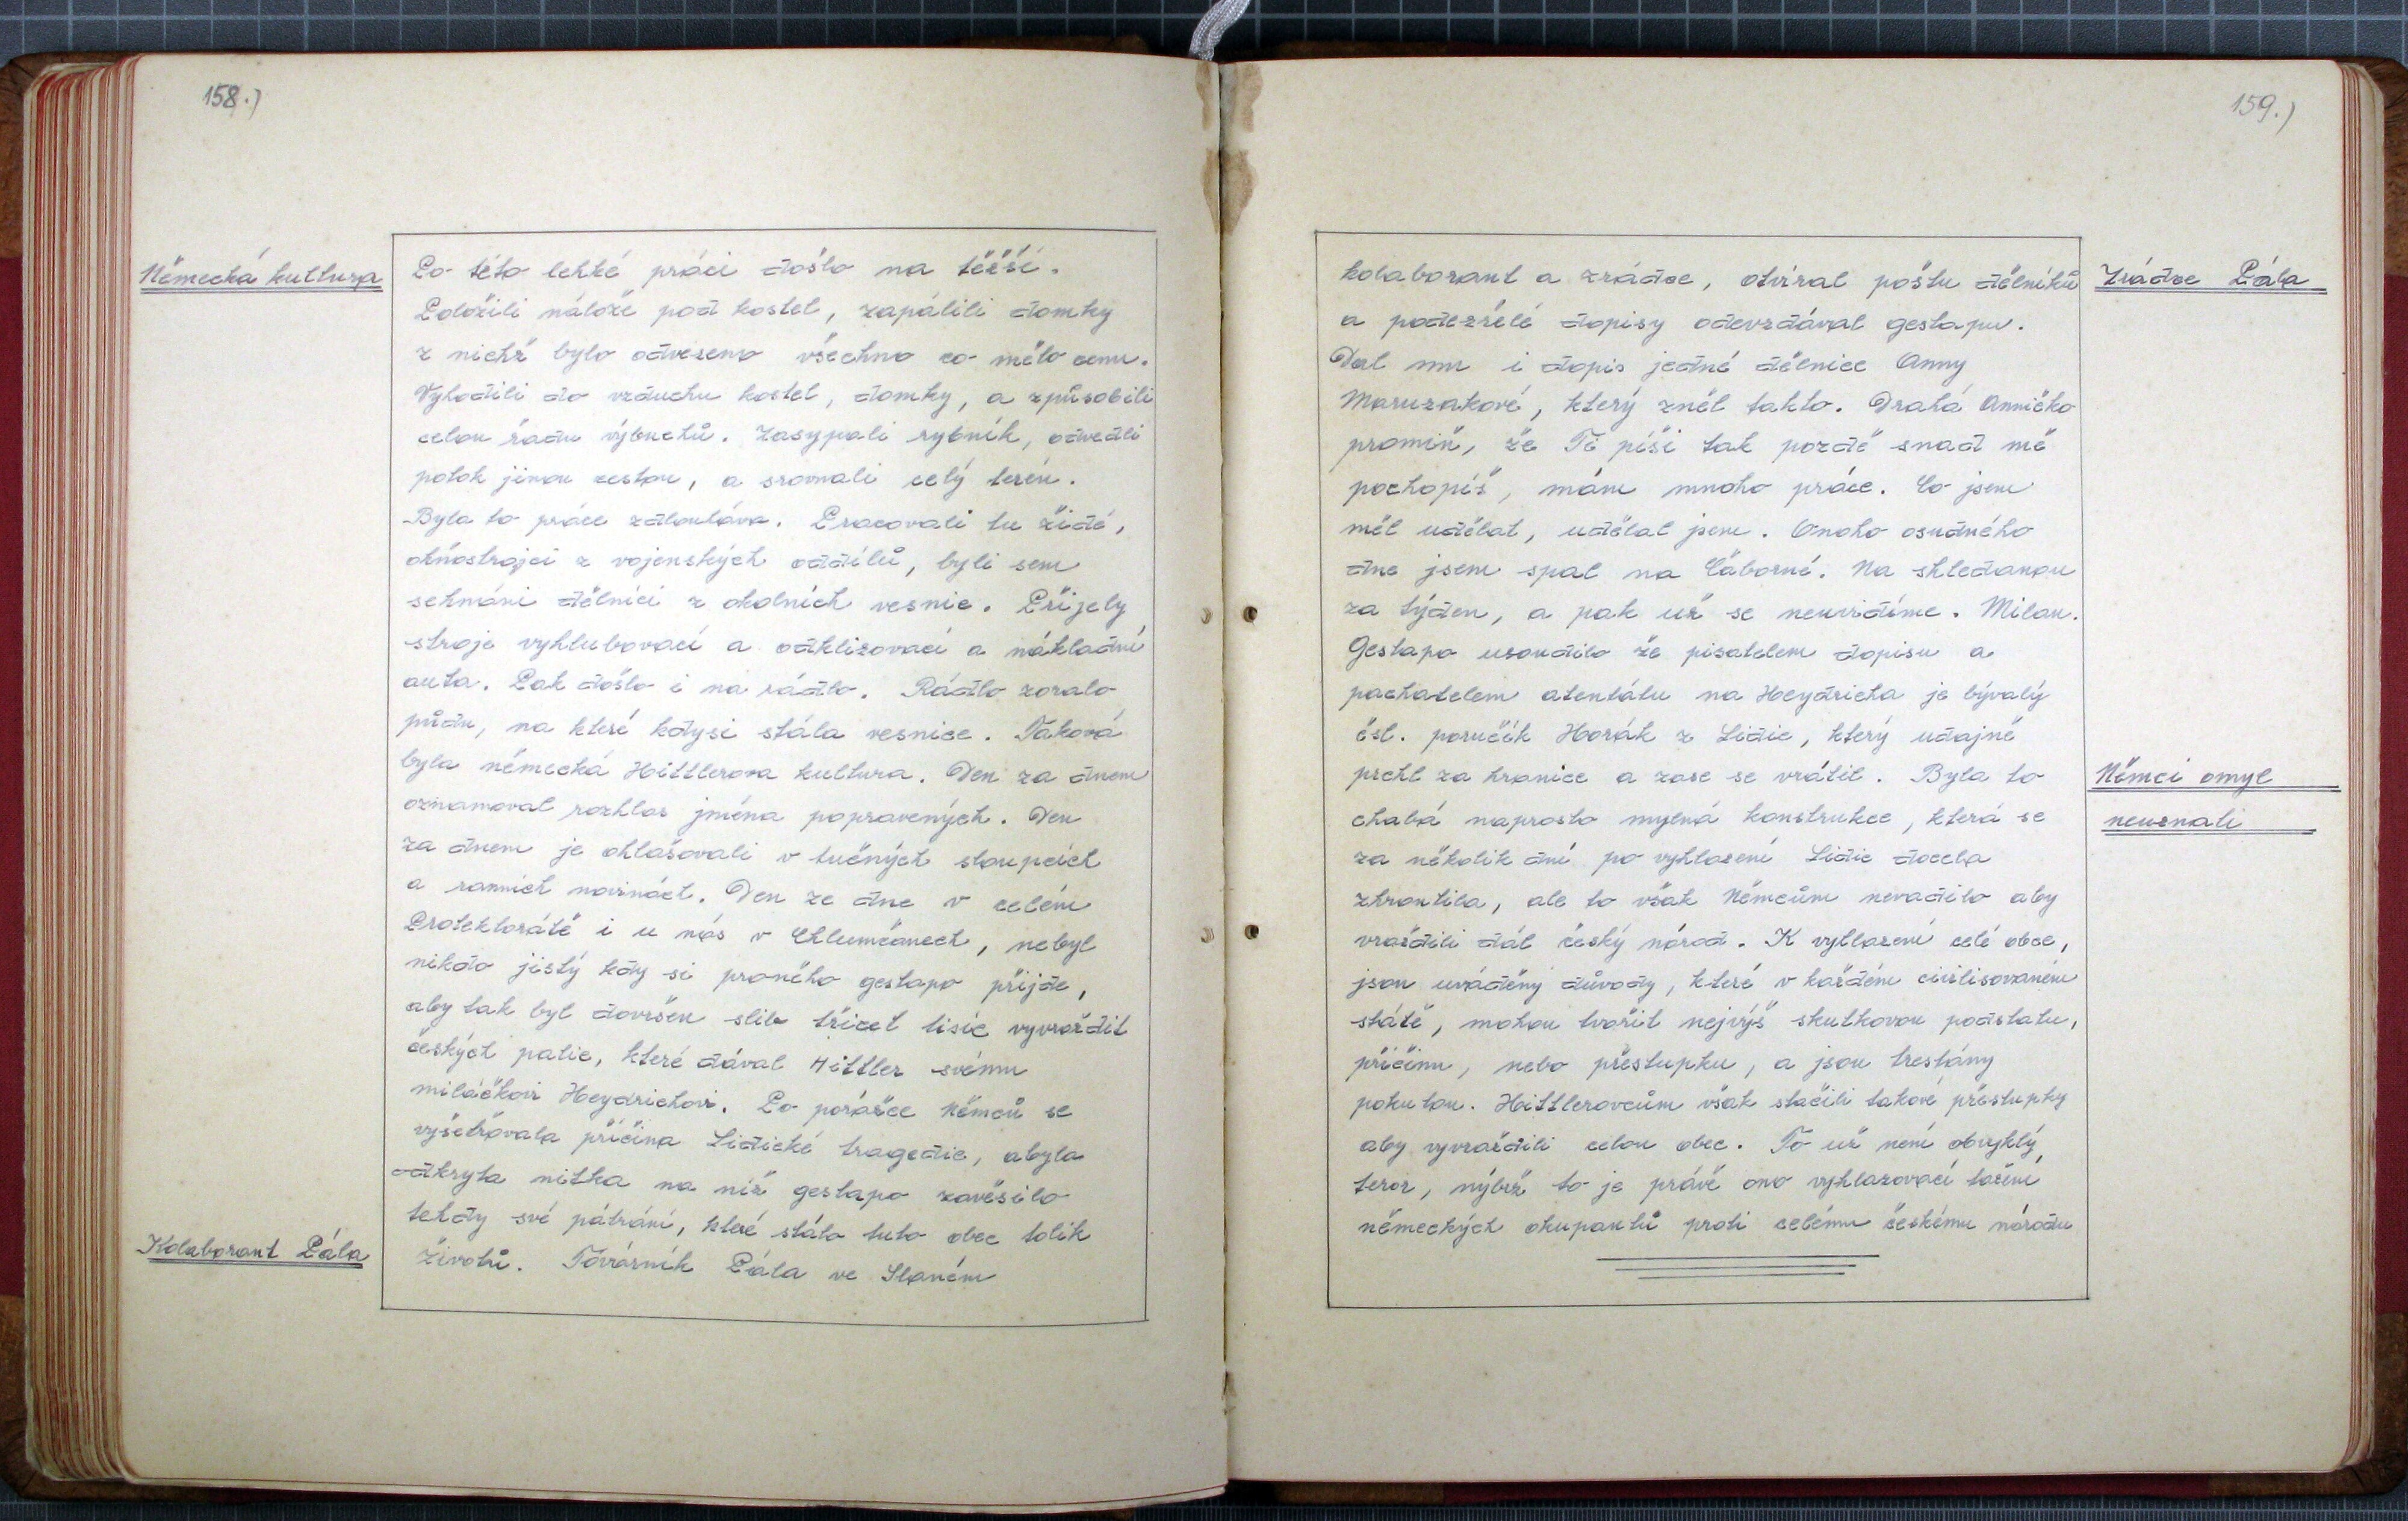 158.)
Německá kultura
Po této lehké práci došlo na těžší.
Položili nálože pod kostel, zapálili domky
z nichž bylo odvezeno všechno co mělo cenu.
Vyhodili do vzduchu kostel, domky, a způsobili
celou řadu výbuchů. Zasypali rybník, odvedli
potok jinou cestou, a srovnali celý terén.
Byla to práce zdlouláva. Pracovali tu židé,
ohňostrojci z vojenských oddílů, byli sem
sehnáni dělníci z okolních vesnic. Přijely
stroje vyhlubovací a odklizovací a nákladní
auta. Pak došlo i na rádlo. Rádlo zoralo
půdu, na které kdysi stála vesnice. Taková
byla německá Hittlerova kultura. Den za dnem
oznamoval rozhlas jména popravených. Den
za dnem je ohlašovali v tučných sloupcích
a ranních novinách. Den ze dne v celém
Protektorátě i u nás v Chlumčanech, nebyl
nikdo jistý kdy si proného gestapo přijde,
aby tak byl dovršen slib třicet tisíc vyvraždit
českých palic, které dával Hittler svému
miláčkovi Heydrichovi. Po porážce Němců se
vyšetřovala příčina Lidické tragedie, abyla
odkryta nitka na niž gestapo zavěsilo
tehdy své pátrání, které stálo tuto obec tolik
Kolaborant Pála
životů. Továrník Pála ve Slaném
159.)
kolaborant a zrádce, otvíral poštu dělníků
Zrádce Pála
a podezřelé dopisy odevzdával gestapu.
Dal mu i dopis jedné dělnice Anny
Maruzakové, který zněl takto. Drahá Anničko
promiň, že Ti píši tak pozdě snad mě
pochopíš, mám mnoho práce. Co jsem
měl udělat, udělal jsem. Onoho osudného
dne jsem spal na Čáborné. Na shledanou
za týden, a pak už se neuvidíme. Milan.
Gestapo usoudilo že pisatelem dopisu a
pachatelem atentátu na Heydricha je bývalý
čsl. poručík Horák z Lidic, který udajně
prchl za hranice a zase se vrátil. Byla to
Němci omyl
chabá naprosto mylná konstrukce, která se
neuznali
za několik dní po vyhlazení Lidic docela
zhroutila, ale to však Němcům nevadilo aby
vraždili dál český národ. K vyhlazení celé obce,
jsou uváděny důvody, které v každém civilisovaném
státě, mohou tvořit nejvýš skutkovou podstatu,
příčinu, nebo přestupku, a jsou trestány
pokutou. Hittlerovcům však stačili takové přestupky
aby vyvraždili celou obec. To už není obvyklý
teror, nýbrž to je právě ono vyhlazovací tažení
německých okupantů proti celému českému národu